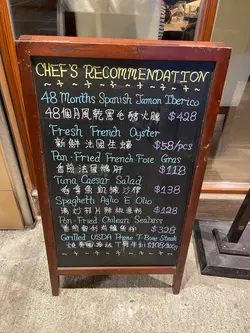 CHEF'S RECOMMENDATION
48 Months Spanish Jamon Iberico
48個月風乾黑毛豬火腿 $428
Fresh French Oyster
新鮮法國生蠔 $58/pcs
Pan-Fried French Foie Gras
香煎法國鴨肝 $118
Tuna Caesar Salad
吞拿魚凱撒沙律 $138
Spaghetti Aglio E Olio
辣椒 $128
Pan-Fried Chilean Seabass
香煎智利鱸魚 $328
Grilled USDA Prime T-Bone Steak